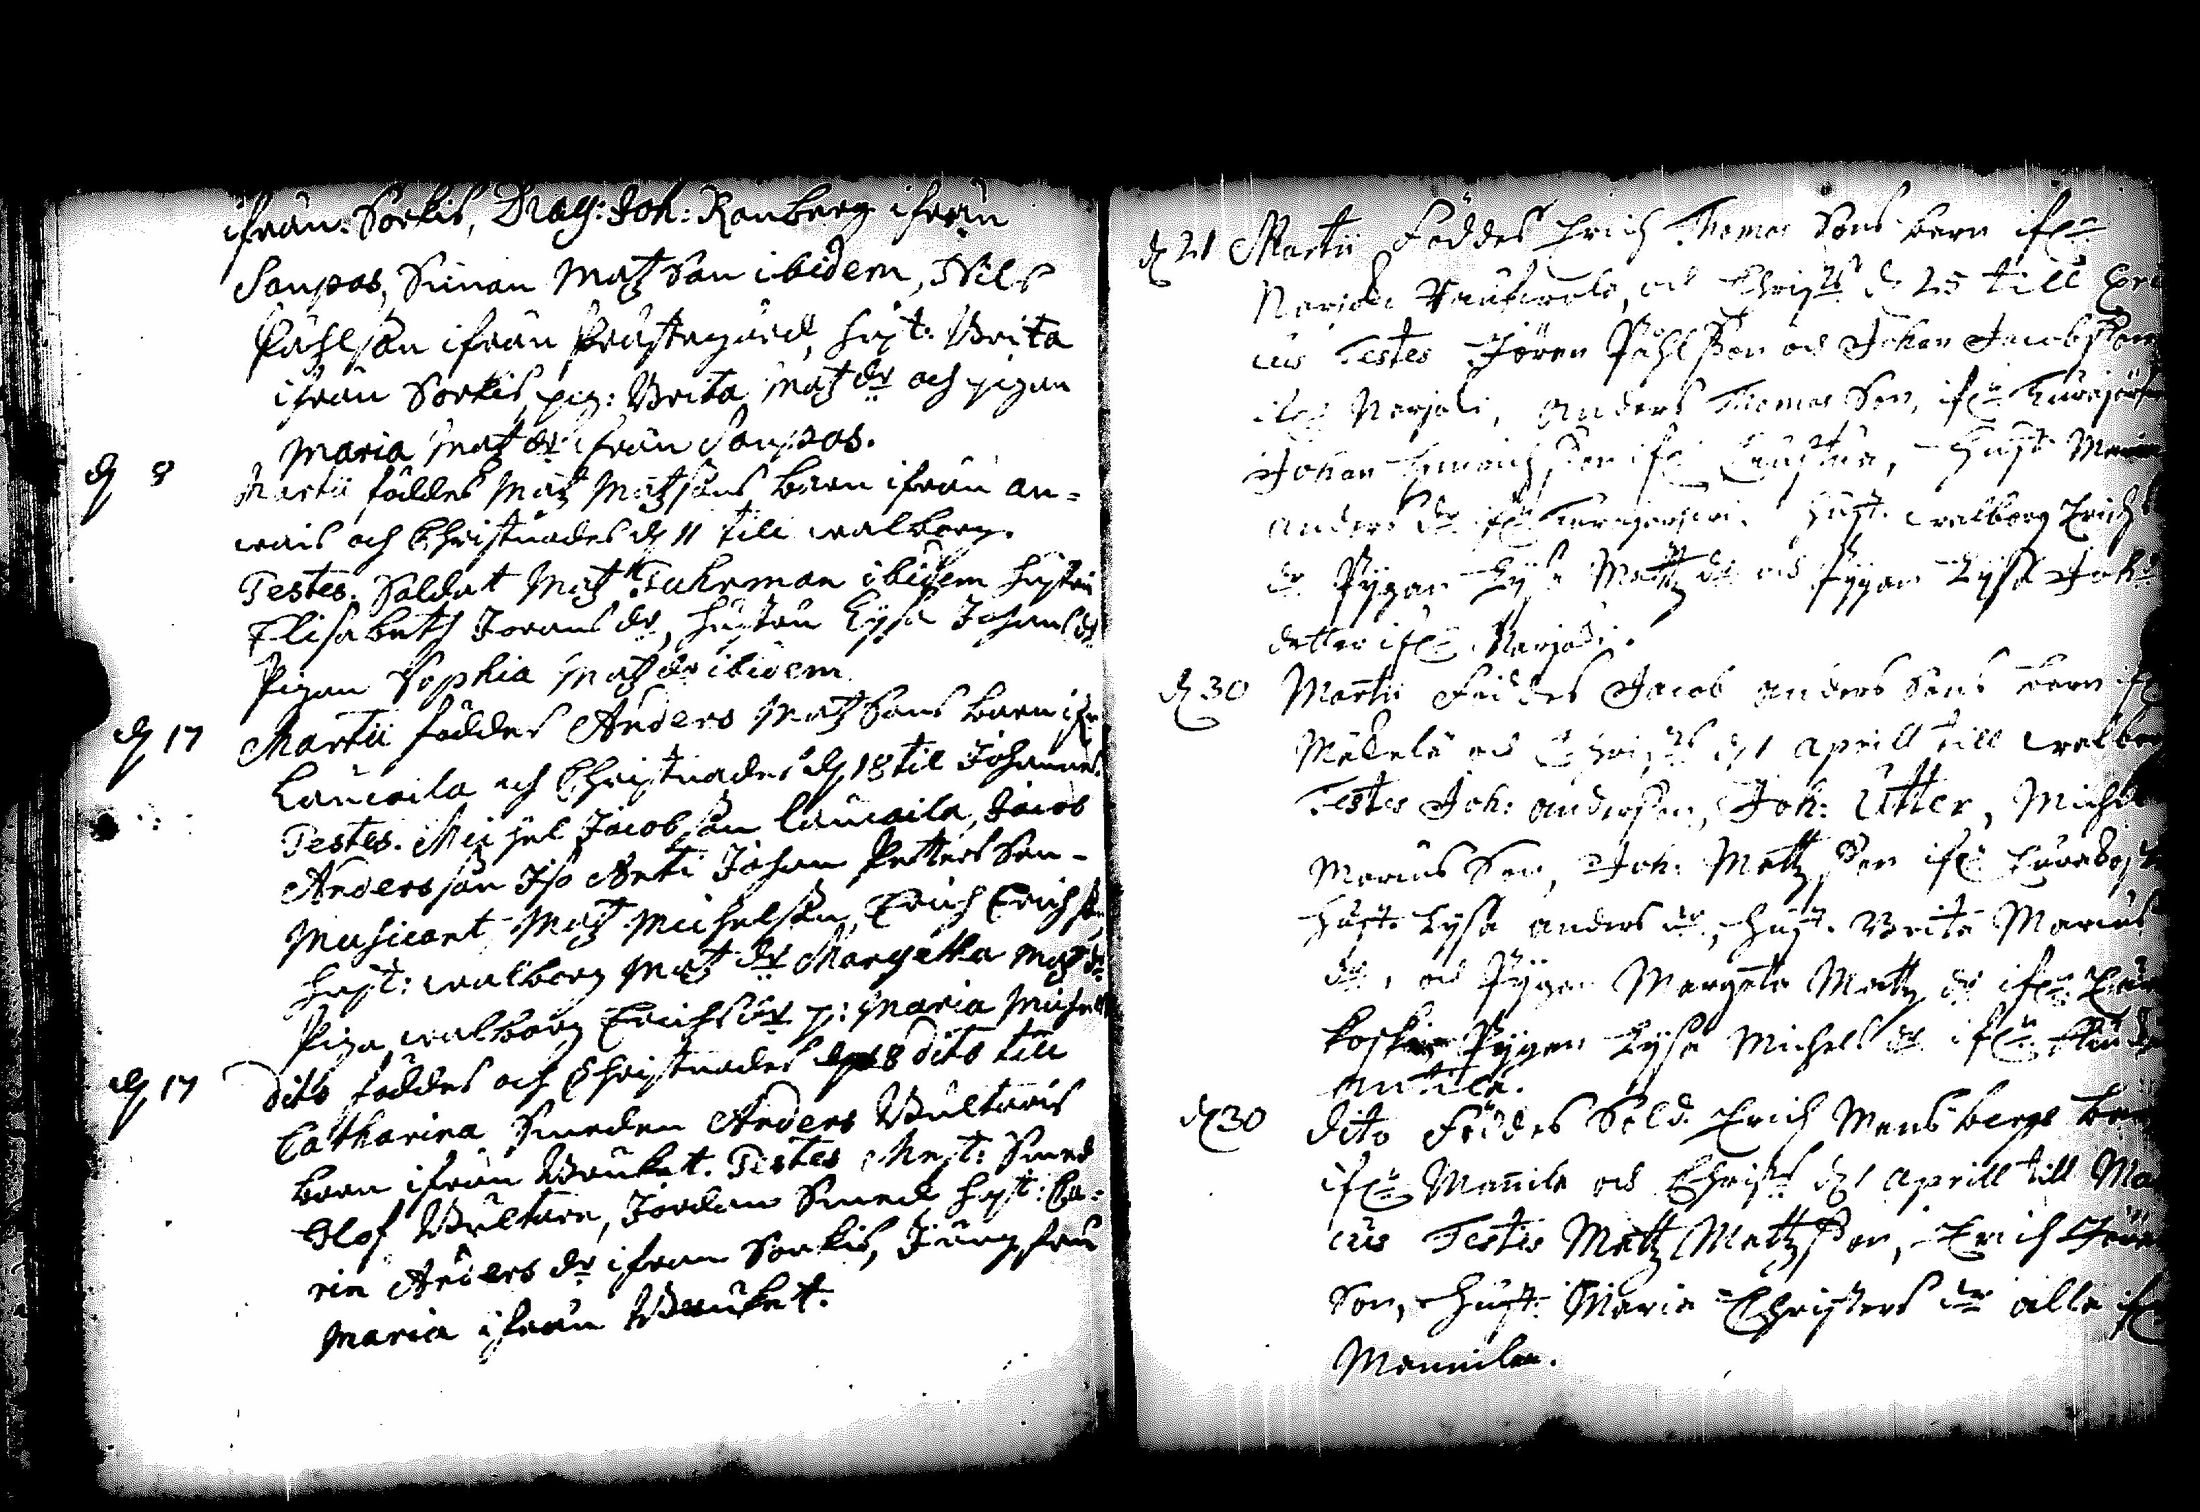 ifrån Sorkis, Drag: Joh: Ranberg ifrån
Sanpas, Simon Matz San ibidem, Nils
Påhlsån ifrån Prästegård, hust: Brita
ifrån Sorkis, pig: Brita Matz dr och pigan
Maria Matz dr ifrån Sanpas.
d 8 Martii föddes Matz Matzsons barn ifrån an-
wais och Christnades d 11 till walborg.
Testes. Soldat Matz Fuhrman ibidem hustru
Elisabeth Joransdr, hustru Lysa Johansdr
Pigan Sophia Matz dr ibidem
d 17 Martii föddes Anders Matz Sons barn ifr
Laucaila och Christnades d 18 til Johannes.
Testes. Michel Jacobsson Laucaila, Jacob
Andersson Iso Anti Johan Petters Son -
Musicant Matz Michelson, Erich Erichs
hust: walborg Matz dr Margetha Matz dr
Piga walborg Erichs dr p: Maria Michels
d 17 dito föddes och Christnades d 18 dito till
Catharina Smeden Anders Bultaris
barn ifrån Bruket. Testes Mest: Smed
Olof Bultare, Jordan Smed hust: Ca-
rin Anders dr ifrån Sorkis, Jungfru
Maria ifrån Bruket.
d 21 Martii Föddes Erich Thomas Sons barn ifrn
Narjoki och Christ d 25 till
cus Testes Jören Påhlsson och Johan Jacobsson
Narjoki, Anders Thomas Son, ifn
Johan Henrich Son ifn hust
Anders dr ifn hust. walborg Erichs
dr Pygan Lysa Matz dr och Pygan Lysa Joh
dotter ifn Narjoki.
d 30 Martii Föddes Jacob Anders Sons barn if
Mäkelä och Christ d 1 Aprill till walbor
Testes Joh: Anderson, Joh: Utter, Michel
Marcus Son, Joh: Matz Son ifn
hust. Lysa Anders dr, hust. Brita Marcus
dr, och Pygan Margeta Matz dr ifn
koski Pygan Lysa Michels dr ifn
Antila.
d 30 dito Föddes Sold. Erich Mansbergs bar
ifn Mannila och Christ d 1 Aprill till Ma
cus Testes Matz Matz Son, Erich Jören
Son, hust: Maria Christers dr alla if
Mannila.